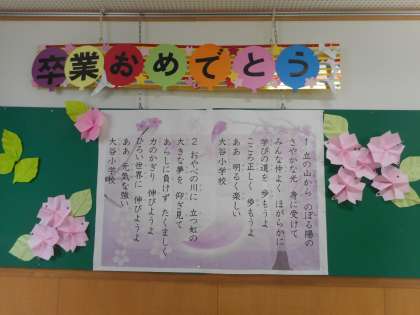 卒業おめでとう
1 立の山から のぼる陽の
さやかな光 身に受けて
みんな仲よく ほがらかに
学びの道を 歩もうよ
こころ正しく 歩もうよ
ああ 明るく楽しい
大谷小学校
2 おやべの川に 立つ虹の
大きな夢を 仰ぎ見て
あらしに負けず たくましく
力のかぎり 伸びようよ
ひろい世界に 伸びようよ
ああ 元気な強い
大谷小学校